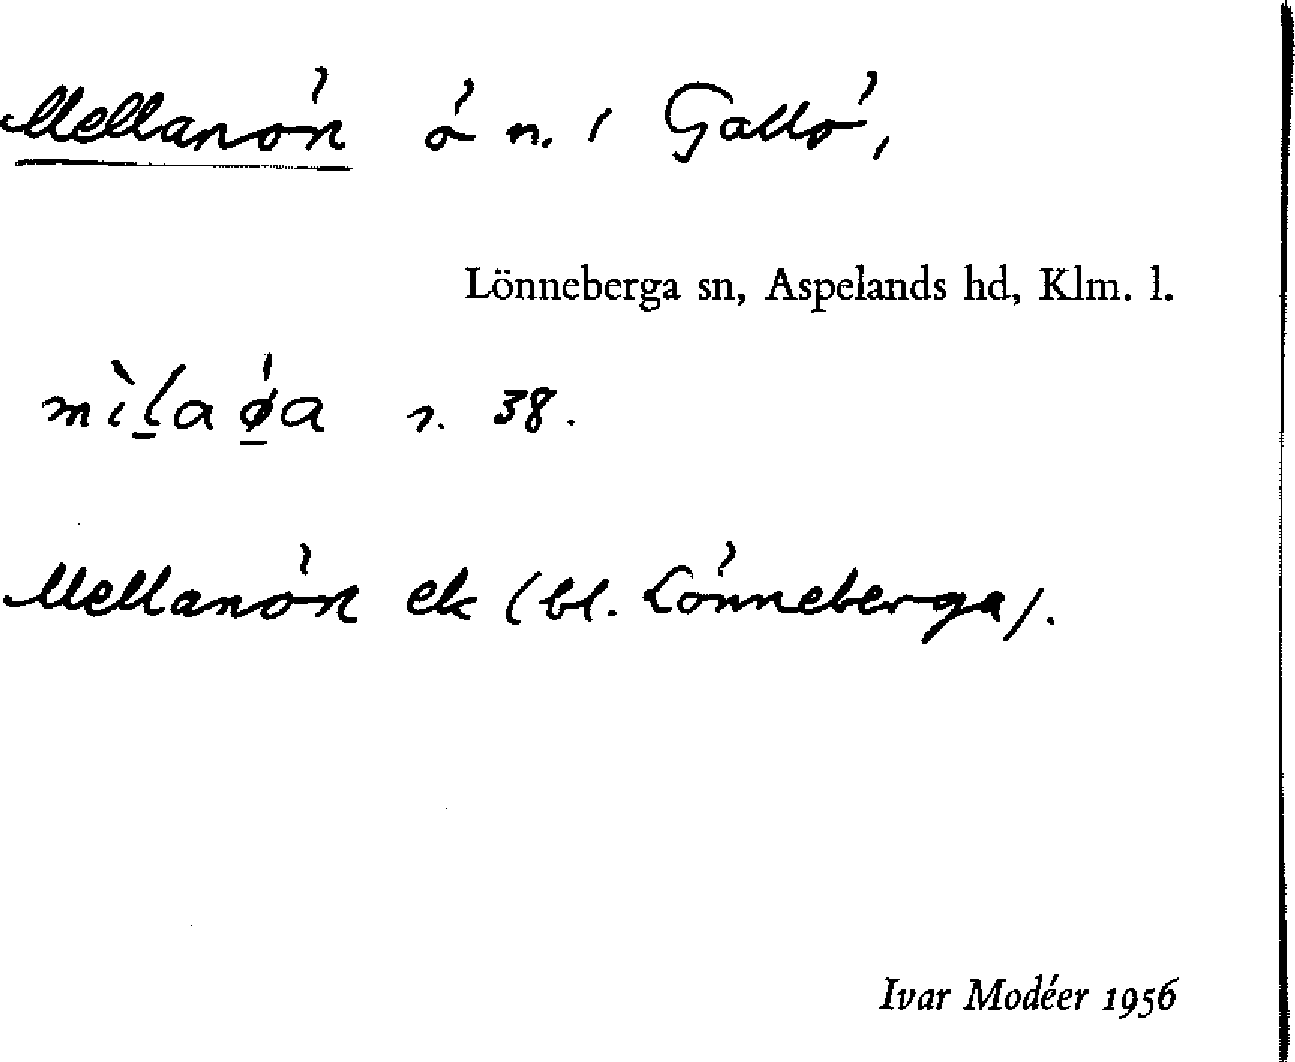 Mellanön ö n. i Gallö,
Lönneberga sn, Aspelands hd, Klm. l.
s. 38.
Mellanön ek (bl. Lönneberga).
Ivar Modéer 1956